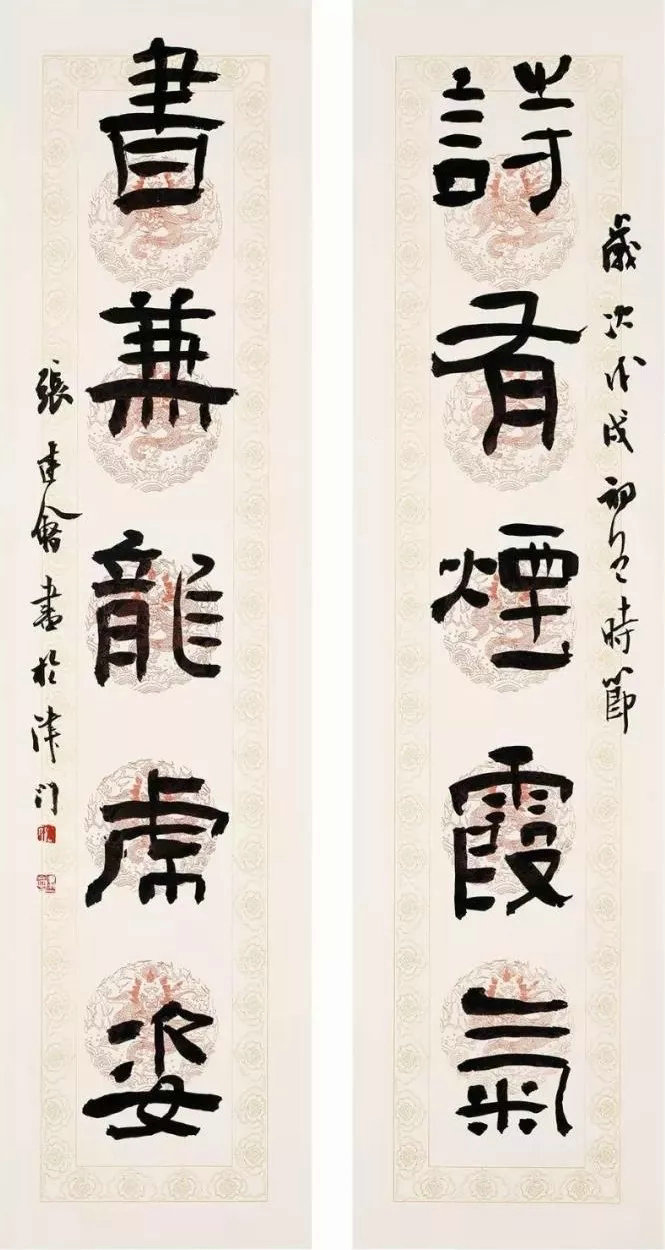 詩有煙霞氣
歲次戊戌初冬時節
書兼龍虎姿
張建會書於津門